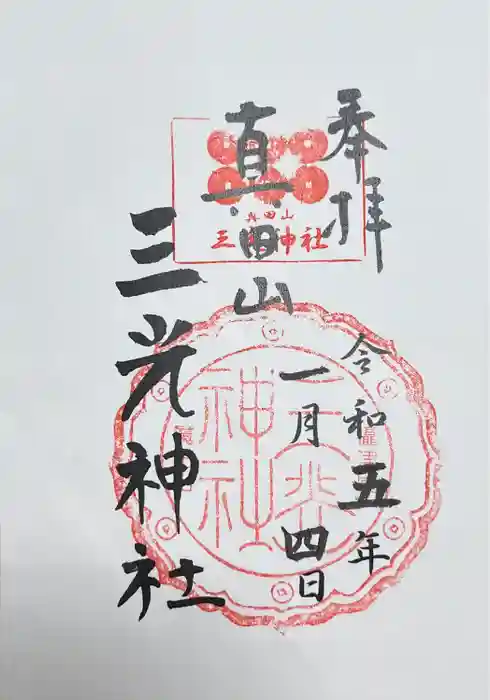 奉拝
令和五年
一月四日
真田山
三光神社
真田山
三光神社
三光
神社